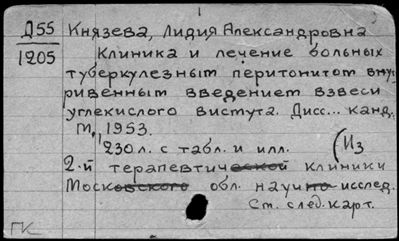 Д55
1205
Князева, Лидия Александровна
Клиника и лечение больных
туберкулезным перитонитом вну-
ривенным введением взвеси
углекислого висмута. Дисс... канд.
М., 1953.
230 л. с табл. и илл. (Из
2-й терапевтической клиники
Московского обл. научно исслед.
Ст. след. карт.
ГК